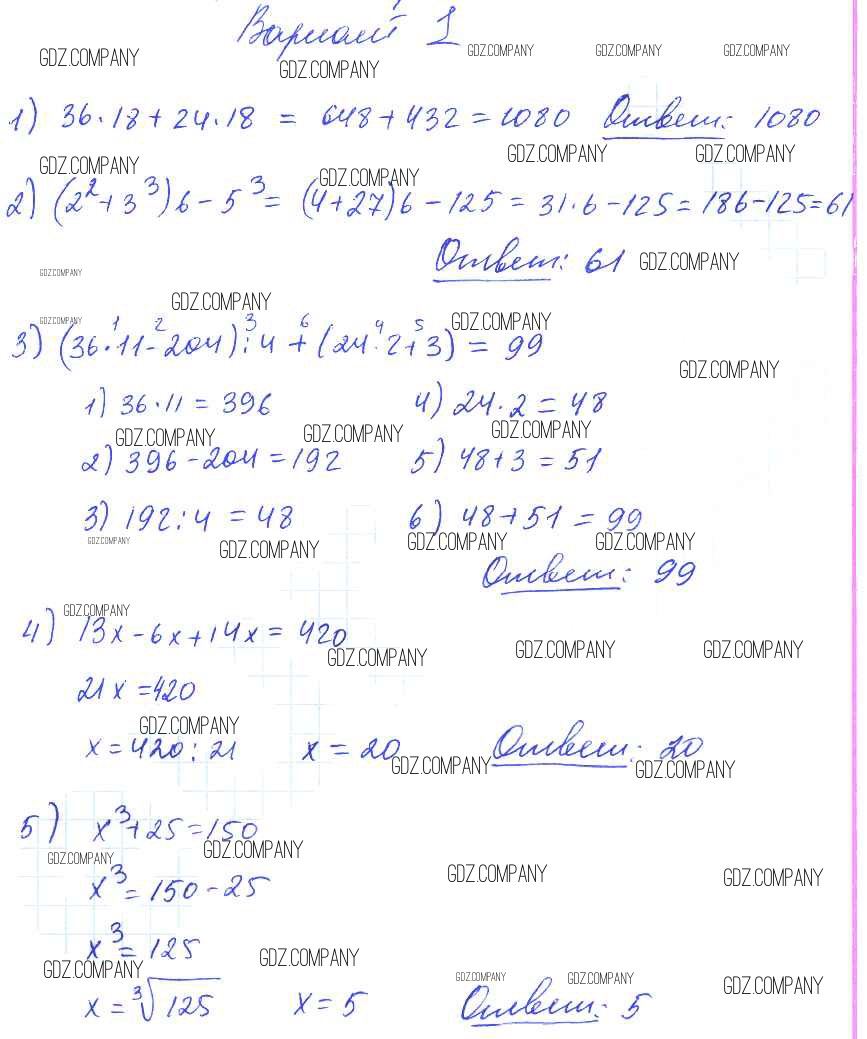 Вариант 1
GDZ.COMPANY GDZ.COMPANY GDZ.COMPANY GDZ.COMPANY GDZ.COMPANY
1) 36·18+24·18 = 648+432=1080 Ответ: 1080
GDZ.COMPANY GDZ.COMPANY GDZ.COMPANY GDZ.COMPANY
2) (2²+3³)6-5³= (4+27)6-125=31·6-125=186-125=61
Ответ: 61 GDZ.COMPANY
GDZ.COMPANY
GDZ.COMPANY
GDZ.COMPANY 1 2 3 6 4 5 GDZ.COMPANY
3) (36·11-204):4+(24·2+3)= 99
GDZ.COMPANY
1) 36·11=396 4) 24·2=48
GDZ.COMPANY GDZ.COMPANY GDZ.COMPANY
2) 396-204=192 5) 48+3=51
3) 192:4=48 6) 48+51=99
GDZ.COMPANY GDZ.COMPANY GDZ.COMPANY GDZ.COMPANY
Ответ: 99
GDZ.COMPANY
4) 13x-6x+14x=420
GDZ.COMPANY GDZ.COMPANY GDZ.COMPANY
21x=420
GDZ.COMPANY
x=420:21 x=20 Ответ: 20
GDZ.COMPANY GDZ.COMPANY
5) x³+25=150
GDZ.COMPANY GDZ.COMPANY GDZ.COMPANY GDZ.COMPANY
x³=150-25
x³=125
GDZ.COMPANY GDZ.COMPANY GDZ.COMPANY GDZ.COMPANY GDZ.COMPANY
x=³√125 x=5 Ответ: 5